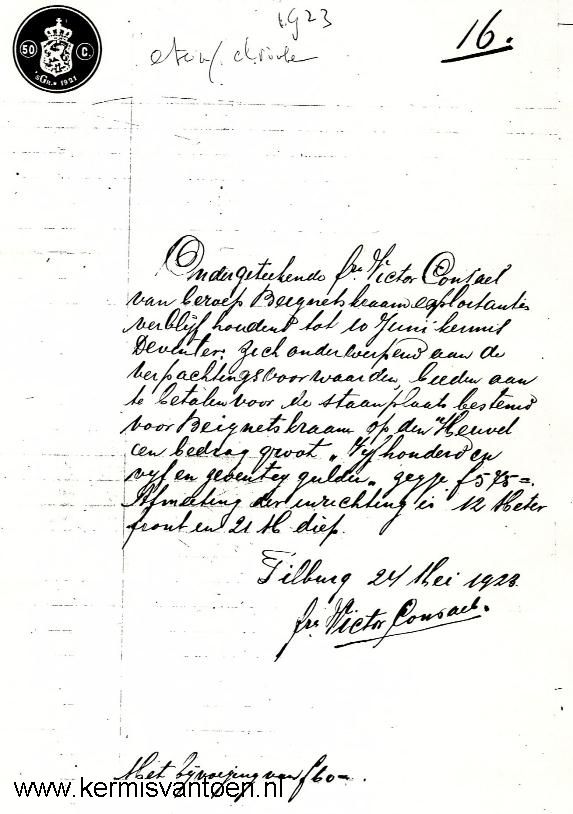 1923
16.
50 C.
'sGR. 1921
Ondergeteekende fra Victor Consael
van beroep Beignetskraamexploitante
verblijf houdend tot 10 Juni kermis
Deventer; zich onderwerpend aan de
verpachtingsvoorwaarden, bieden aan
te betalen voor de staanplaats bestemd
voor Beignetskraam op den Heuvel
een bedrag groot „Vijfhonderd en
vijf en zeventig gulden„ zegge f 575=.
Afmeeting der inrichting is 12 Meter
front en 21 M diep.
Tilburg 24 Mei 1923.
fra Victor Consael.
Met bijvoeging van f60=.
www.kermisvantoen.nl